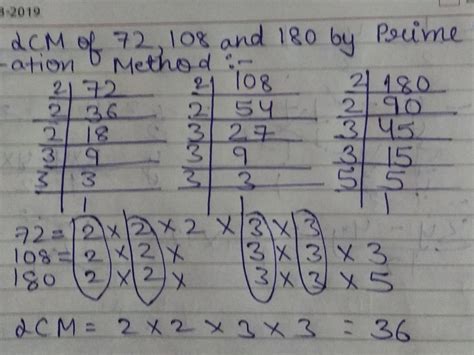 3-2019
LCM of 72, 108 and 180 by Prime
-ation Method :-
2 | 72 2 | 108 2 | 180
2 | 36 2 | 54 2 | 90
2 | 18 3 | 27 3 | 45
3 | 9 3 | 9 3 | 15
3 | 3 3 | 3 5 | 5
1 1 1
72 = 2 × 2 × 2 × 3 × 3
108 = 2 × 2 × 3 × 3 × 3
180 2 × 2 × 3 × 3 × 5
LCM = 2 × 2 × 3 × 3 = 36